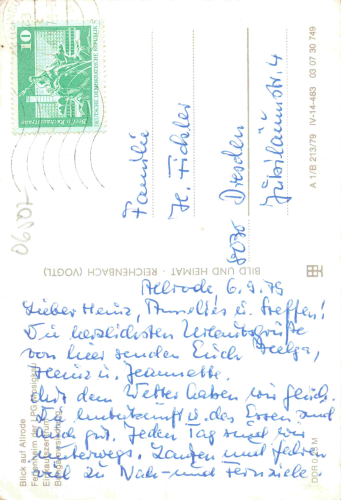 10
DEUTSCHE DEMOKRATISCHE REPUBLIK
Familie
H. Fichler
8030 Dresden
Jubiläumstr. 4
A 1/B 213/79 IV-14-483 03 07 30 749
BILD UND HEIMAT · REICHENBACH (VOGTL)
Allrode 6.9.79
Lieber Heinz, Annelies u. Steffen!
Die herzlichsten Urlaubsgrüße
von hier senden Euch Helga,
Heinz u. Jeannette.
Mit dem Wetter haben wir Glück.
Die Unterkunft u. das Essen sind
auch gut. Jeden Tag sind wir
unterwegs. Laufen und fahren
viel zu Nah- und Fernziele
Blick auf Allrode
Ferienheim der